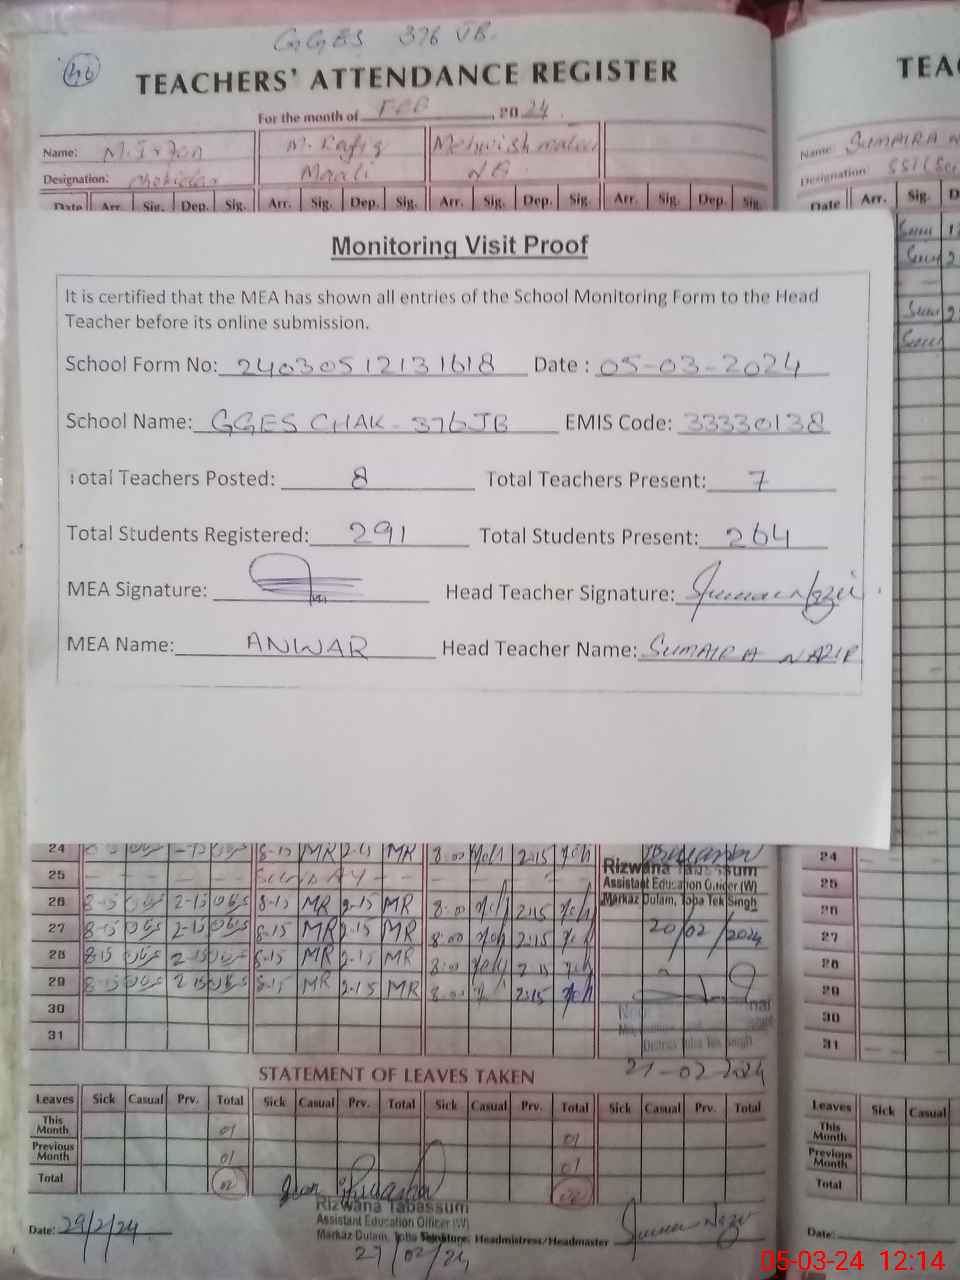 GGES 376 JB.
46
TEACHERS' ATTENDANCE REGISTER
For the month of FEB, 2024.
Name: M. Irfan M. Rafiq Mehwish
Designation: Maali NQ
Date Arr. Sig. Dep. Sig. Arr. Sig. Dep. Sig. Arr. Sig. Dep. Sig. Arr. Sig. Dep. Sig.
TEAC
Name: SUMAIRA N
Designation SST (Sc
Date Arr. Sig. D
Monitoring Visit Proof
It is certified that the MEA has shown all entries of the School Monitoring Form to the Head
Teacher before its online submission.
School Form No: 24030512131618 Date : 05-03-2024
School Name: GGES CHAK-376JB EMIS Code: 33330138
Total Teachers Posted: 8 Total Teachers Present: 7
Total Students Registered: 291 Total Students Present: 264
MEA Signature: Head Teacher Signature:
MEA Name: ANWAR Head Teacher Name: SUMAIRA NAZIR
24 8-15 MR 2-15 MR 8:00 2:15
25 SUNDAY
26 8-15 2-15 8-15 MR 2-15 MR 8:00 2:15
27 8-15 2-15 8-15 MR 2-15 MR 8:00 2:15
28 8-15 2-15 8-15 MR 2-15 MR 8:00 2-15
29 8-15 2-15 8-15 MR 2-15 MR 8:00 2:15
30
31
Rizwana Tabassum
Assistant Education Officer (W)
Markaz Dulam, Toba Tek Singh
20/02/2024
District Toba Tek Singh
21-02-2024
24
25
26
27
28
29
30
31
STATEMENT OF LEAVES TAKEN
Leaves Sick Casual Prv. Total Sick Casual Prv. Total Sick Casual Prv. Total Sick Casual Prv. Total
This Month 01 01
Previous Month 01 01
Total 02 02
Leaves Sick Casual
This Month
Previous Month
Total
Rizwana Tabassum
Assistant Education Officer (W)
Markaz Dulam, Toba
27/02/24
Date: 29/2/24 Signature: Headmistress/Headmaster
Date:
05-03-24 12:14